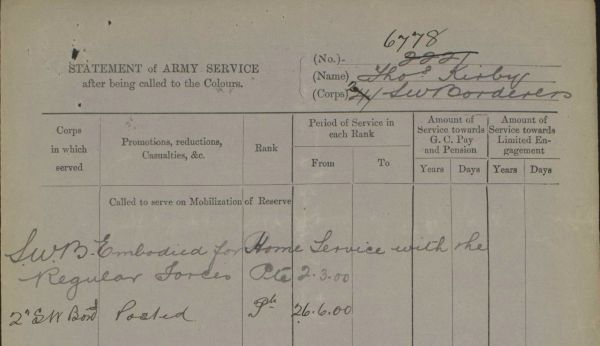 6778
STATEMENT of ARMY SERVICE
after being called to the Colours.
(No.)- 2221
(Name) Thos Kirby
(Corps) 4/ S W Borderers
Corps in which served
Promotions, reductions, Casualties, &c.
Rank
Period of Service in each Rank
From
To
Amount of Service towards G. C. Pay and Pension
Years
Days
Amount of Service towards Limited Engagement
Years
Days
Called to serve on Mobilization of Reserve
S.W.B. Embodied for Home Service with the
Regular Forces Pte 2.3.00
2nd S W Bord Posted Pte 26.6.00